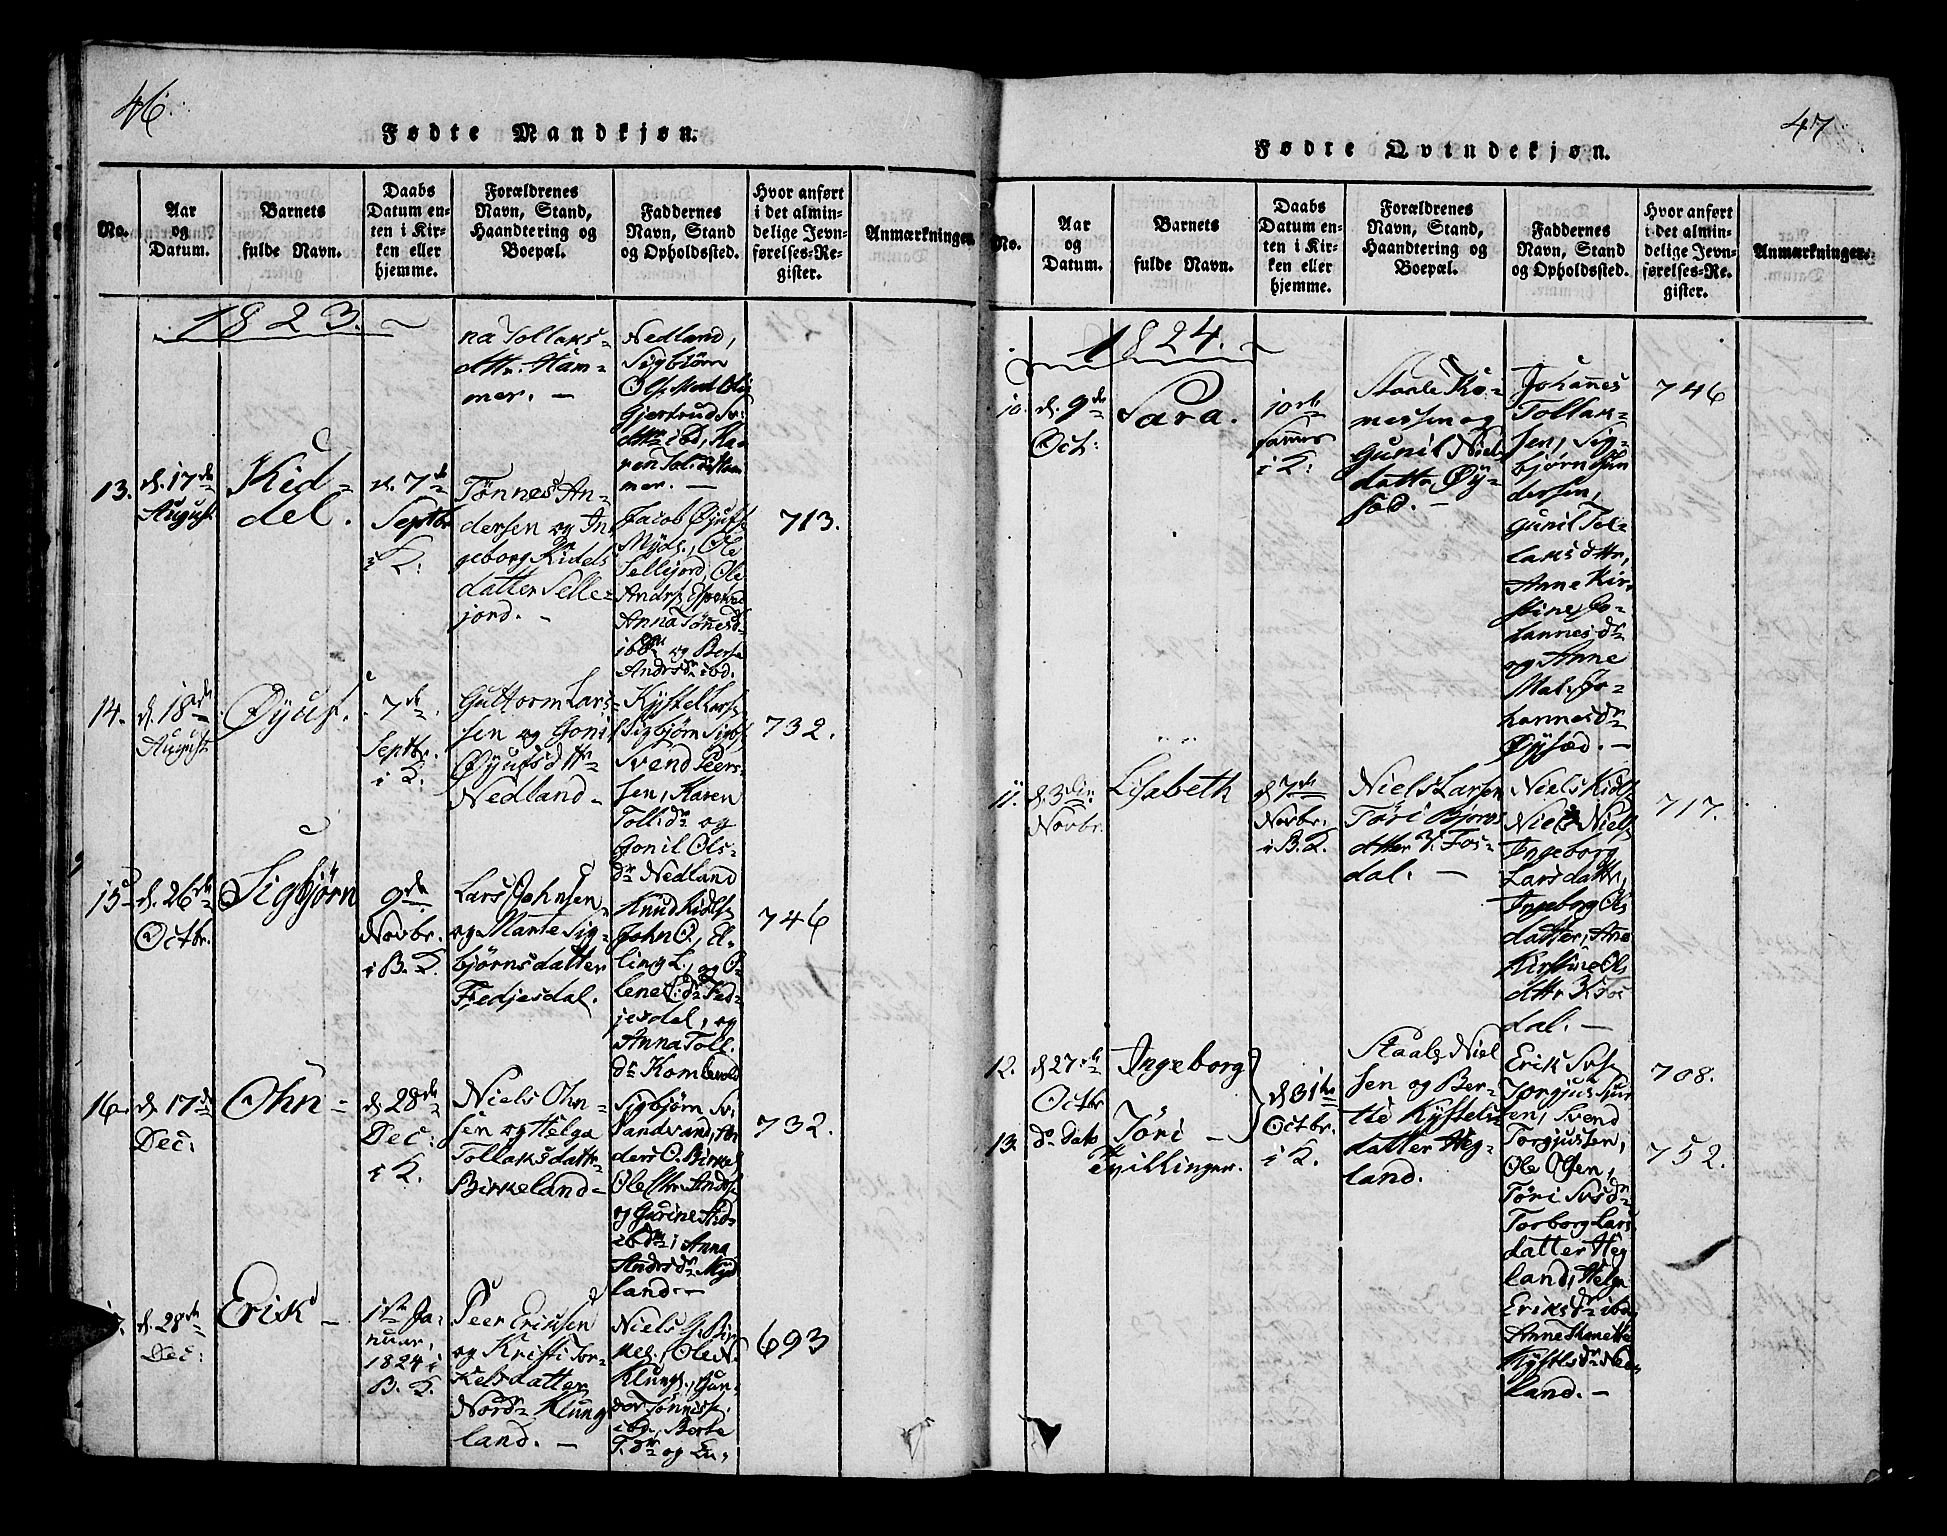 46.
Fødte Mandkjøn.
No.
Aar
og
Datum.
Barnets
fulde Navn.
Daabs
Datum en-
ten i Kir-
ken eller
hjemme.
Forældrenes
Navn, Stand,
Haandtering og
Boepæl.
Faddernes
Navn, Stand
og Opholdssted.
Hvor anført
i det almin-
delige Jevn-
førelses-Re-
gister.
Anmærkninger.
1823.
na Tollaks-
dttr. Ham-
mer. –
Nedland,
Sigbiørn
mer. –
13.
d. 17de
August
Kid-
del.
d. 7de
Septbr
i K:
Tønnes An-
dersen og In-
geborg Kidels
datter Selle-
jord. –
Jacob Øjufs.
Myds., Ole
Sellejord, Ole
Anna Tønesd.
og Berte
Andrsdr ibd.
713.
14.
d. 18de
August
Øyuf.
7de
Septbr.
i K.
Guttorm Lars-
sen og Goni
Øyufsdttr
Nedland –
Kystel Lars.
Sigbjørn Sigbs.
Svend Peers-
sen, Karen
Toll. dr og
Gonil Ols-
dr Nedland
732.
15
d. 26de
Octbr.
Sigbjørn
9de
Novbr.
i B. K.
Lars Johnsen
og Marte Sig-
bjørnsdatter
Fedjesdal.
Knud Kidls.
John O., El-
ling L., og O-
lene L. dr Fed-
jesdel, og
Anna Toll.
dr Komlevold
746
16
d. 17de
Dec:
Ohn –
d. 28de
Dec:
i K.
Niels Ohn-
sen og Helga
Tollaksdattr
Birkeland –
Sigbjørn Sv.
Sandvand, An
ders O. Birkel.
og Gurine And.
ibdm; Anna
Andrsdr Myd
land. –
732.
d. 28de
Dec:
Erik –
1ste Ja-
nuar,
1824 i
B. K.
Peer Eriksen
og Kristi Tor-
kelsdatter
Nordr Klung
land. –
Niels G. Bir
kel., Ole N.
Klungl., Gun-
der Tønness.
ibd., Berte
T. dr og En-
693
47
Fødre Qvindekjøn.
No.
Aar
og
Datum.
Barnets
fulde Navn.
Daabs
Datum en-
ten i Kir-
ken eller
hjemme.
Forældrenes
Navn, Stand,
Haandtering og
Boepæl.
Faddernes
Navn, Stand
og Opholdssted.
Hvor anført
i det almin-
delige Jevn-
førelses-Re-
gister.
Anmærkninger.
1824.
10.
d. 9de
Oct:
Sara.
10de
i K:
Staale Tho-
messen og
Gunil Niels
datta Øy-
sæd. –
Johañes
Tollak-
sen, Sig-
bjørn Gun
dersen,
Gunil Tol-
laksdttr,
Anne Kir-
stine Jo-
hannesdr
og Anne
Mal. Jo-
hannesdr
Øysæd. –
746
11.
d. 3die
Novbr.
Lisabeth
d. 7de
Novbr.
i B. K.
Niels Larsen
Tøri Bjørns
dtter Y. Fos-
dal. –
Niels Kidls.
Niels Niels.
Ingeborg
Larsdattr,
Ingeborg Ols
datter, Ane
Kirstine Ols
dttr Y. Fos
dal. –
717.
12.
d. 27de
Octbr
Ingeborg
d. 31te
Octbr.
i K.
Staale Niel
sen og Ber-
the Kystels
datter Heg-
land.
Erik Svs.
Torgjus Gun
sen, Svend
Torgjussen,
Ole Olsen,
Tøri Svsdr
Torborg Lars
datter Heg
land, Helga
Eriksdr ibd.,
Anne Thonette
Kystlsdr Ned-
land. –
708.
13.
do dato
Tøri –
Tvillinger.
752.